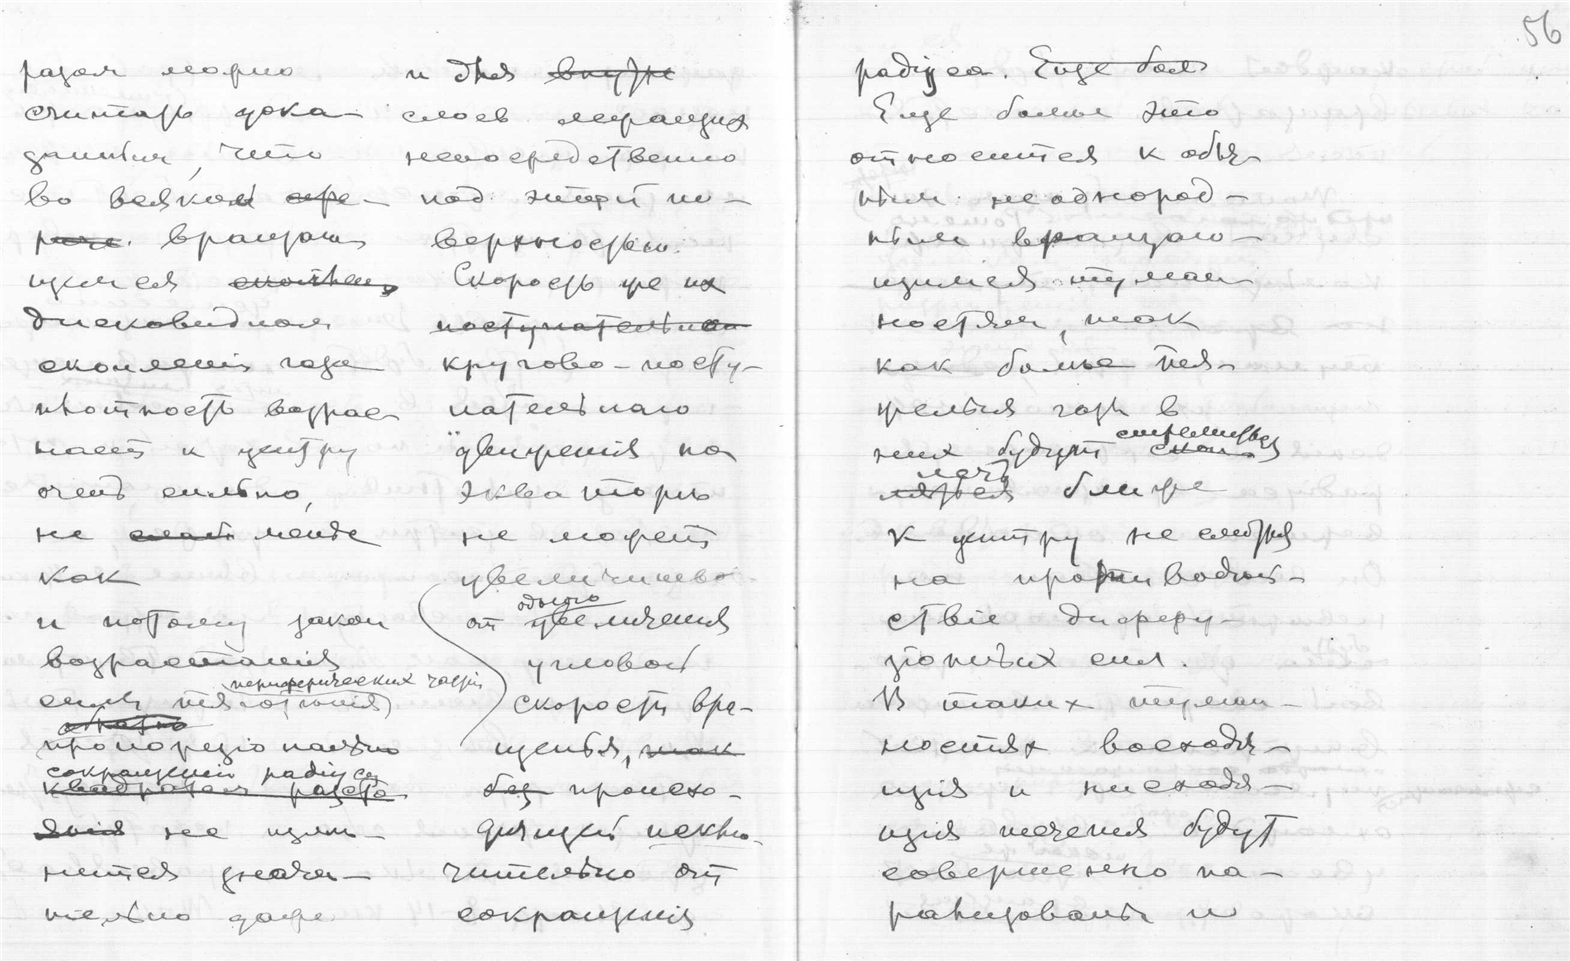 56
разом можно
считать дока-
занным, что
во всяком сре-
рече. вращаю
щемся скоплен
дисковидном
скоплении газа
плотность возрас
таетъ к центру
очень сильно,
не слабъ менее
как
и потому закон
возрастания
силы тяготения
периферических частей
обратно
пропорционально
сокращению радиуса
квадратам расстоя
яния не изме-
нится значи-
тельно даже
и для внутре
слоев лежащих
непосредственно
под этой по-
верхностью.
Скорость же их
поступательная
кругово-посту-
пательнаго
движения по
экватору
не может
увеличиват
одного
от увеличения
угловой
скорости вра-
щения, так
без происхо-
дящей исклю-
чительно от
сокращения
радіуса. Еще боль
Еще более это
относится к объя-
ным неоднород-
ным вращаю-
щимся туман
ностям, так
как более тя-
желые газы в
них будут стремиться
скоп
лечь
ляться ближе
к центру не смотря
на противодей-
ствіе диффу-
зіонных сил.
В таких туман-
ностях восходя-
щія и нисходя-
щія течения будут
совершенно па-
рализованы и